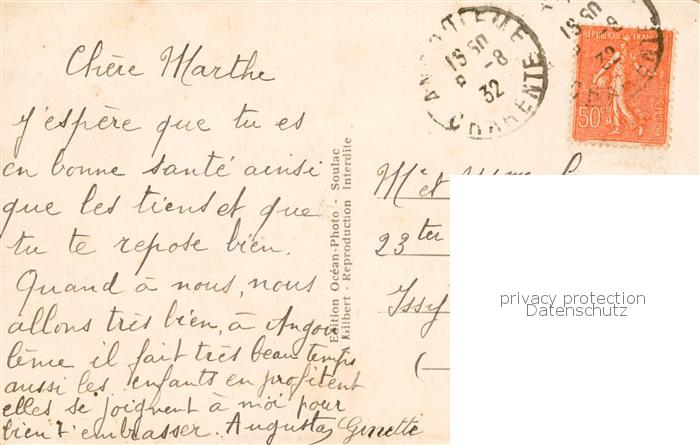 Chère Marthe
J'espère que tu es
en bonne santé ainsi
que les tiens et que
tu te repose bien.
Quand à nous, nous
allons très bien, à Angou
lême il fait très beau temps
aussi les enfants en profitent
elles se joignent à moi pour
bien t'embrasser. Augusta Ginette
Edition Océan-Photo - Soulac
A Gilbert - Reproduction Interdite
ANGOULEME
18 50
8 -8
32
CHARENTE
18 50
-8
32
REPUBLIQUE FRANÇAISE
50c
POSTES
Mr et Mme
23ter
Issy
(
privacy protection
Datenschutz